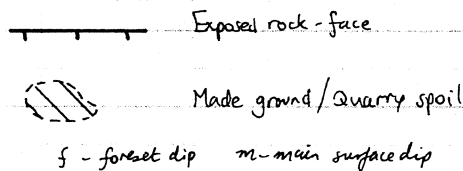 Exposed rock-face
Made ground/Quarry spoil
f - foreset dip m-main surface dip